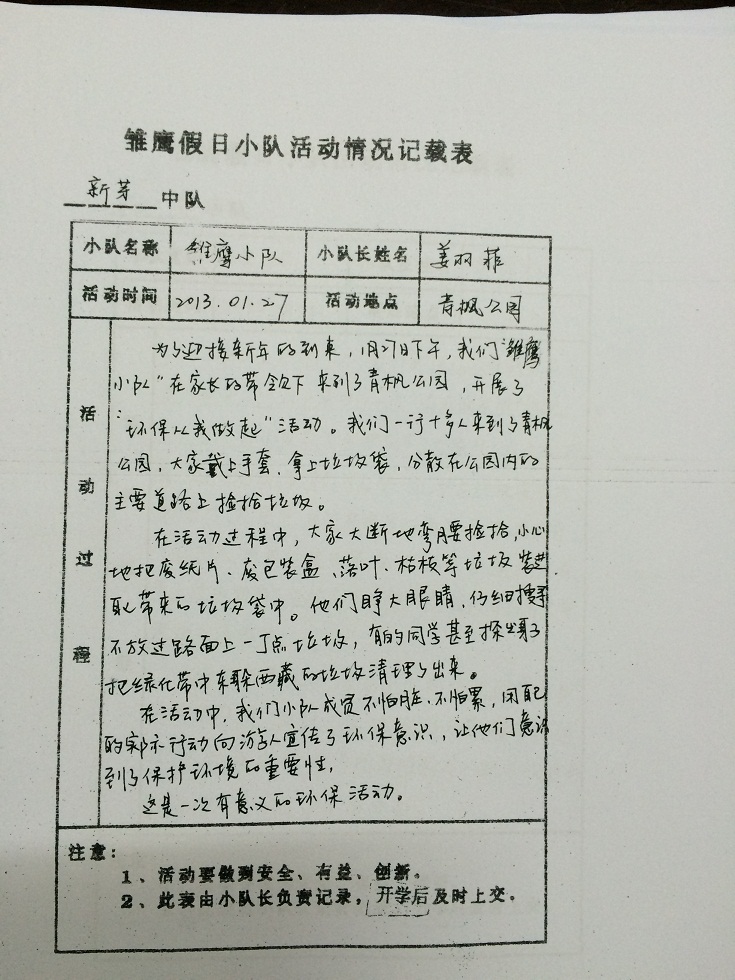 雏鹰假日小队活动情况记载表
新芽中队
小队名称 雏鹰小队 小队长姓名 姜羽菲
活动时间 2013.01.27 活动地点 青枫公园
活动过程
为了迎接新年的到来，1月27日下午，我们“雏鹰
小队”在家长的带领下来到了青枫公园，开展了
“环保从我做起”活动。我们一行十多人来到了青枫
公园，大家戴上手套、拿上垃圾袋，分散在公园内的
主要道路上捡拾垃圾。
在活动过程中，大家大断地弯腰捡拾，小心
地把废纸片、废包装盒、落叶、枯枝等垃圾装进
带来的垃圾袋中。他们睁大眼睛，仔细搜寻
不放过路面上一丁点垃圾，有的同学甚至探出身子
把绿化带中东躲西藏的垃圾清理了出来。
在活动中，我们小队成员不怕脏、不怕累，用
的实际行动向游人宣传了环保意识，让他们意识
到了保护环境的重要性，
这是一次有意义的环保活动。
注意：
1、活动要做到安全、有益、创新。
2、此表由小队长负责记录，开学后及时上交。